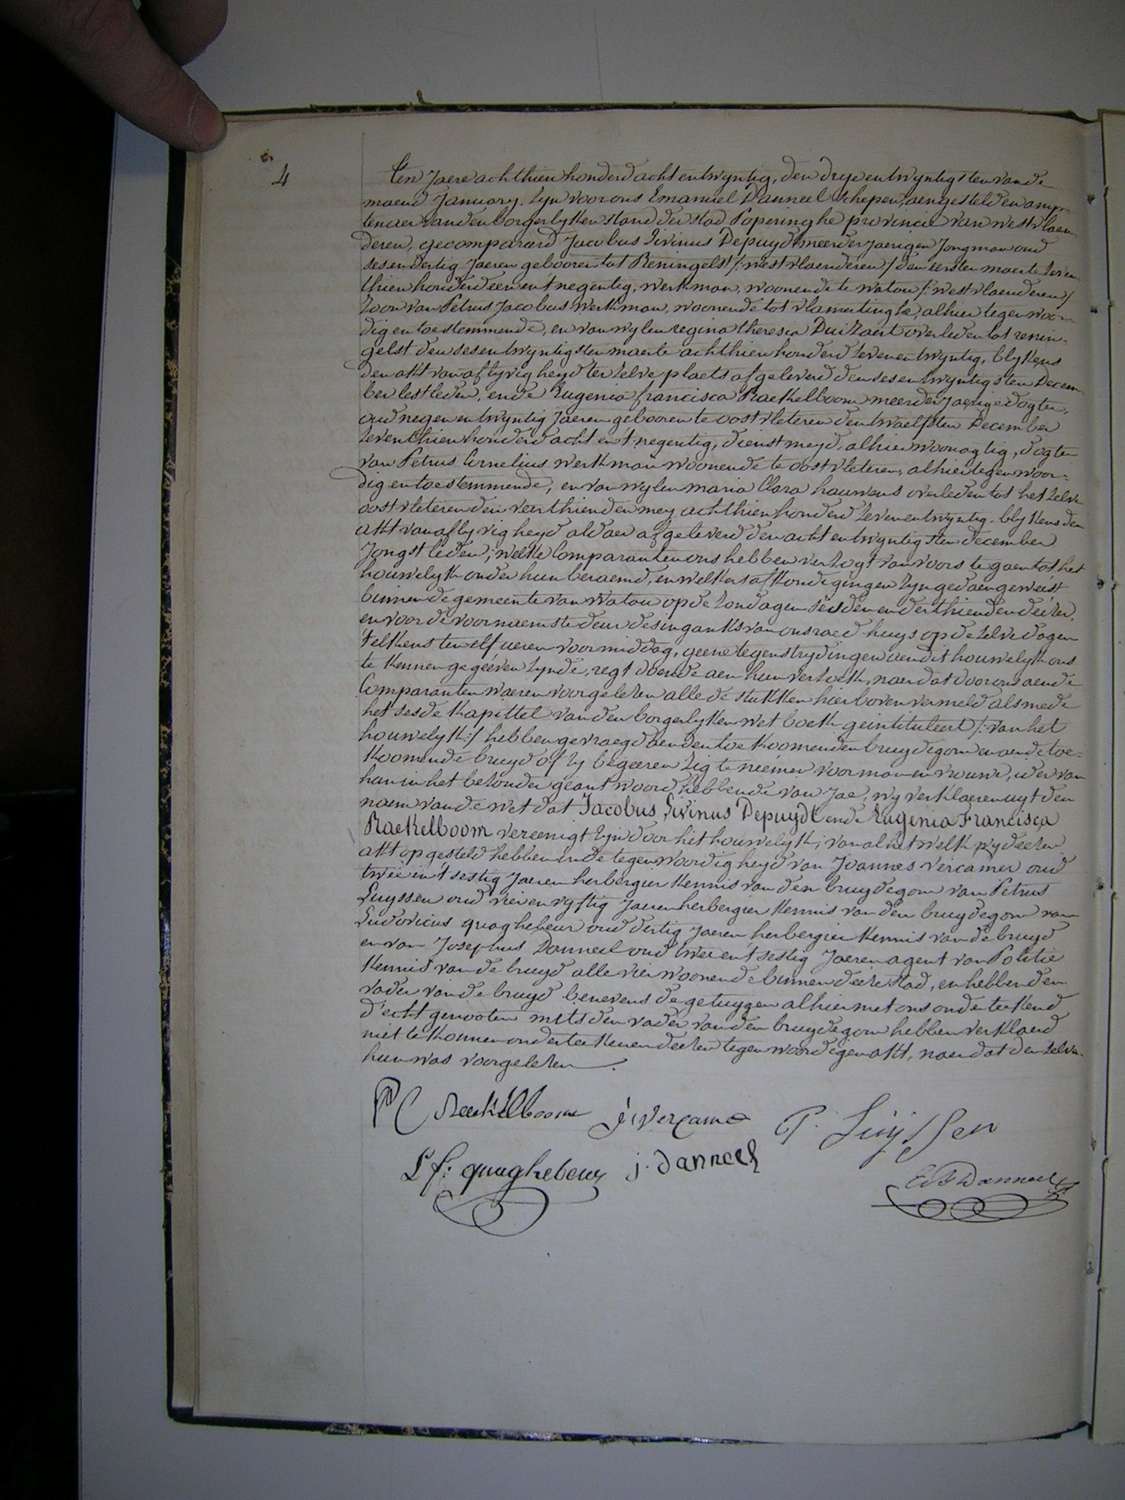 4
Ten Jaere achthien honderd acht entwyntig, den drye entwyntigsten van de
maend January. Zyn voor ons Emanuel Danneel schepen, aengesteld en amp-
tenaer van den borgerlyken stand der stad Poperinghe provincie van westvlaen
deren, gecompareerd Jacobus Livinus Depuydt meerderjaerigen Jongman oud
sesendertig Jaeren geboren tot Reningelst /: westvlaenderen / den eersten maerte seven
thien honderd een en t negentig, werkman, woonende te watou /: westvlaenderen /
Zoon van Petrus Jacobus werkman, woonende tot vlamertinghe, alhier tegenwoor-
dig en toestemmende, en van wylen regina theresia overleden tot renin-
gelst den sesentwyntigsten maerte achthien honderd seven entwyntig, blykens
den akt van aflyvigheyd ter zelve plaets afgeleverd den sesentwyntigsten Decem
ber lestleden, ende Eugenia francisca Raekelboom meerderjaerige dogter,
oud negen entwyntig Jaeren geboren te oostvleteren den twaelfsten December
seventhien honderd acht en t negentig, dienstmeyd, alhier woonagtig, dogter
van Petrus Cornelius werkman woonende te oostvleteren, alhier tegenwoor-
dig en toestemmende, en van wylen maria Clara hauwens overleden tot het zelve
oostvleteren den veerthienden mey achthien honderd seven entwyntig. blykens den
akt van aflyvigheyd aldaer afgeleverd den acht entwyntigsten december
Jongstleden; welke Comparanten ons hebben verzogt van voorts te gaen tot het
houwelyk onder hun beraemd, en welkers afkondigingen zyn gedaen geweest
binnen de gemeente van Watou op de zondagen sesden en derthienden dezer,
en voor de voornaemste deur des ingankts van ons raedhuys op de zelve dagen
telkens ten elf ueren voormiddag, geene tegenstrydingen aen dit houwelyk ons
te kennen gegeeven zynde, regt doende aen hun verzoek, naer dat door ons aen de
Comparanten waeren voorgelezen alle de stukken hierboven vermeld als mede
het sesde kapittel van den borgerlyken wetboek geintituleert /: van het
houwelyk :/ hebben gevraegd aen den toekoomenden bruydegom en aen de toe-
koomende bruyd of zy begeeren zig te neemen voor man en vrouwe, ider van
hun in het bezonder geantwoord hebbende van Jae, wy verklaeren uyt den
naem van de wet dat Jacobus Livinus Depuydt ende Eugenia Francisca
Raekelboom vereenigt zyn door het houwelyk; van al het welk wy dezen
akt opgesteld hebben in de tegenwoordigheyd van Joannes Vercamer oud
twee en t sestig Jaeren herbergier kennis van den bruydegom van Petrus
Luyssen oud vier en vyftig Jaeren herbergier kennis van den bruydegom van
Ludovicus quaghebeur oud dertig Jaeren herbergier kennis van de bruyd
en van Josephus Danneel oud twee en t sestig Jaeren agent van Politie
kennis van de bruyd alle vier woonende binnen deeze stad, en hebben den
vader van de bruyd benevens de getuygen alhier met ons onderteekend
d'echtgenooten mits den vader van den bruydegom hebben verklaerd
niet te konnen onderteekenen dezen tegenwoordigen akt, naer dat den zelven
hun was voorgelezen.
PC Raekelboom j: vercame P. Luyssen
L f: quaghebeur j. danneel
Danneel